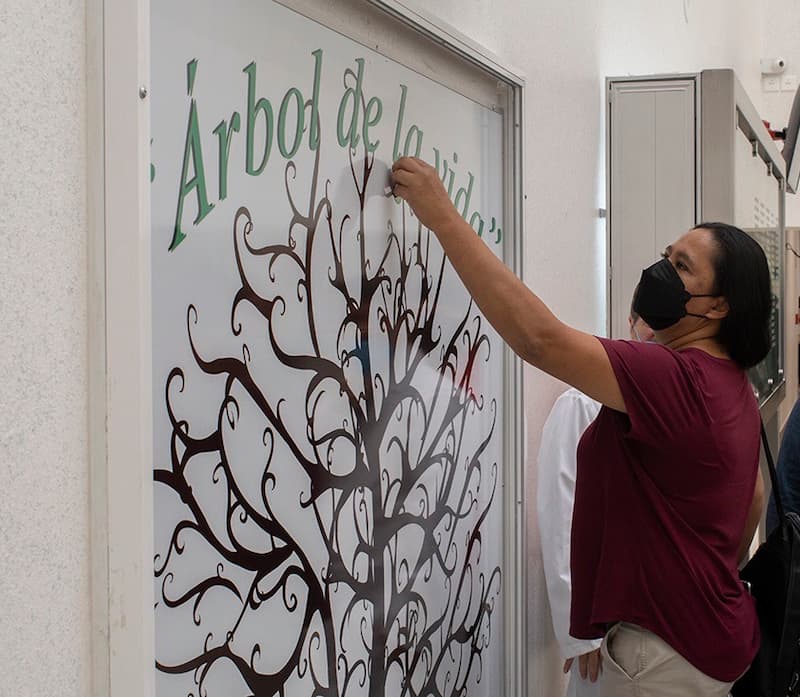 "Árbol de la vida"